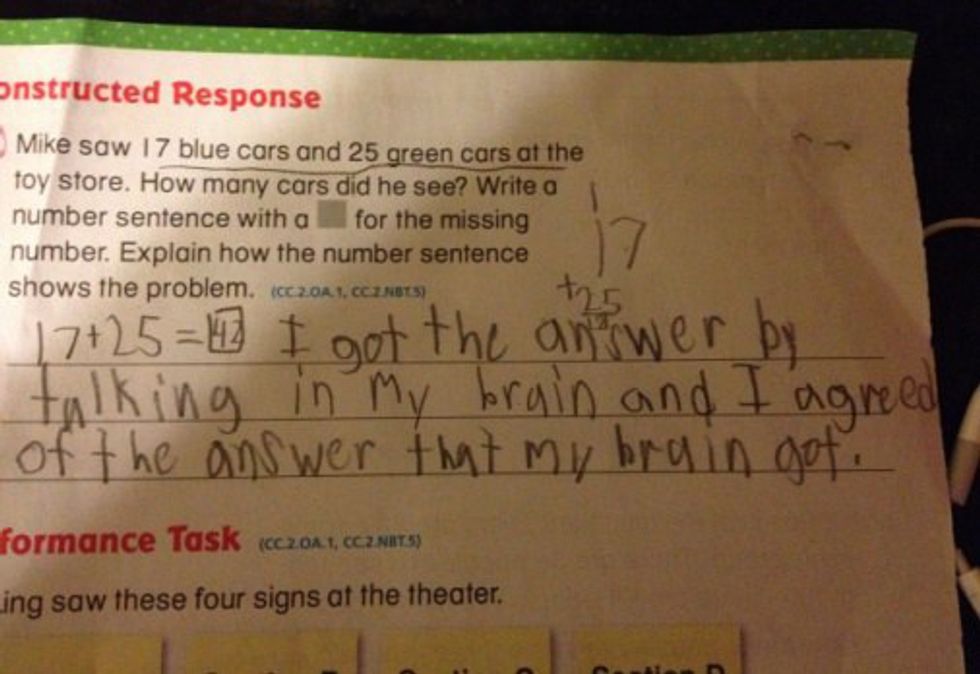 onstructed Response
Mike saw 17 blue cars and 25 green cars at the
toy store. How many cars did he see? Write a
number sentence with a for the missing
number. Explain how the number sentence
shows the problem. (CC.2.OA.1, CC.2.NBT.5)
1
17
+25
17+25=42 I got the answer by
talking in my brain and I agreed
of the answer that my brain got.
formance Task (CC.2.OA.1, CC.2.NBT.5)
ing saw these four signs at the theater.